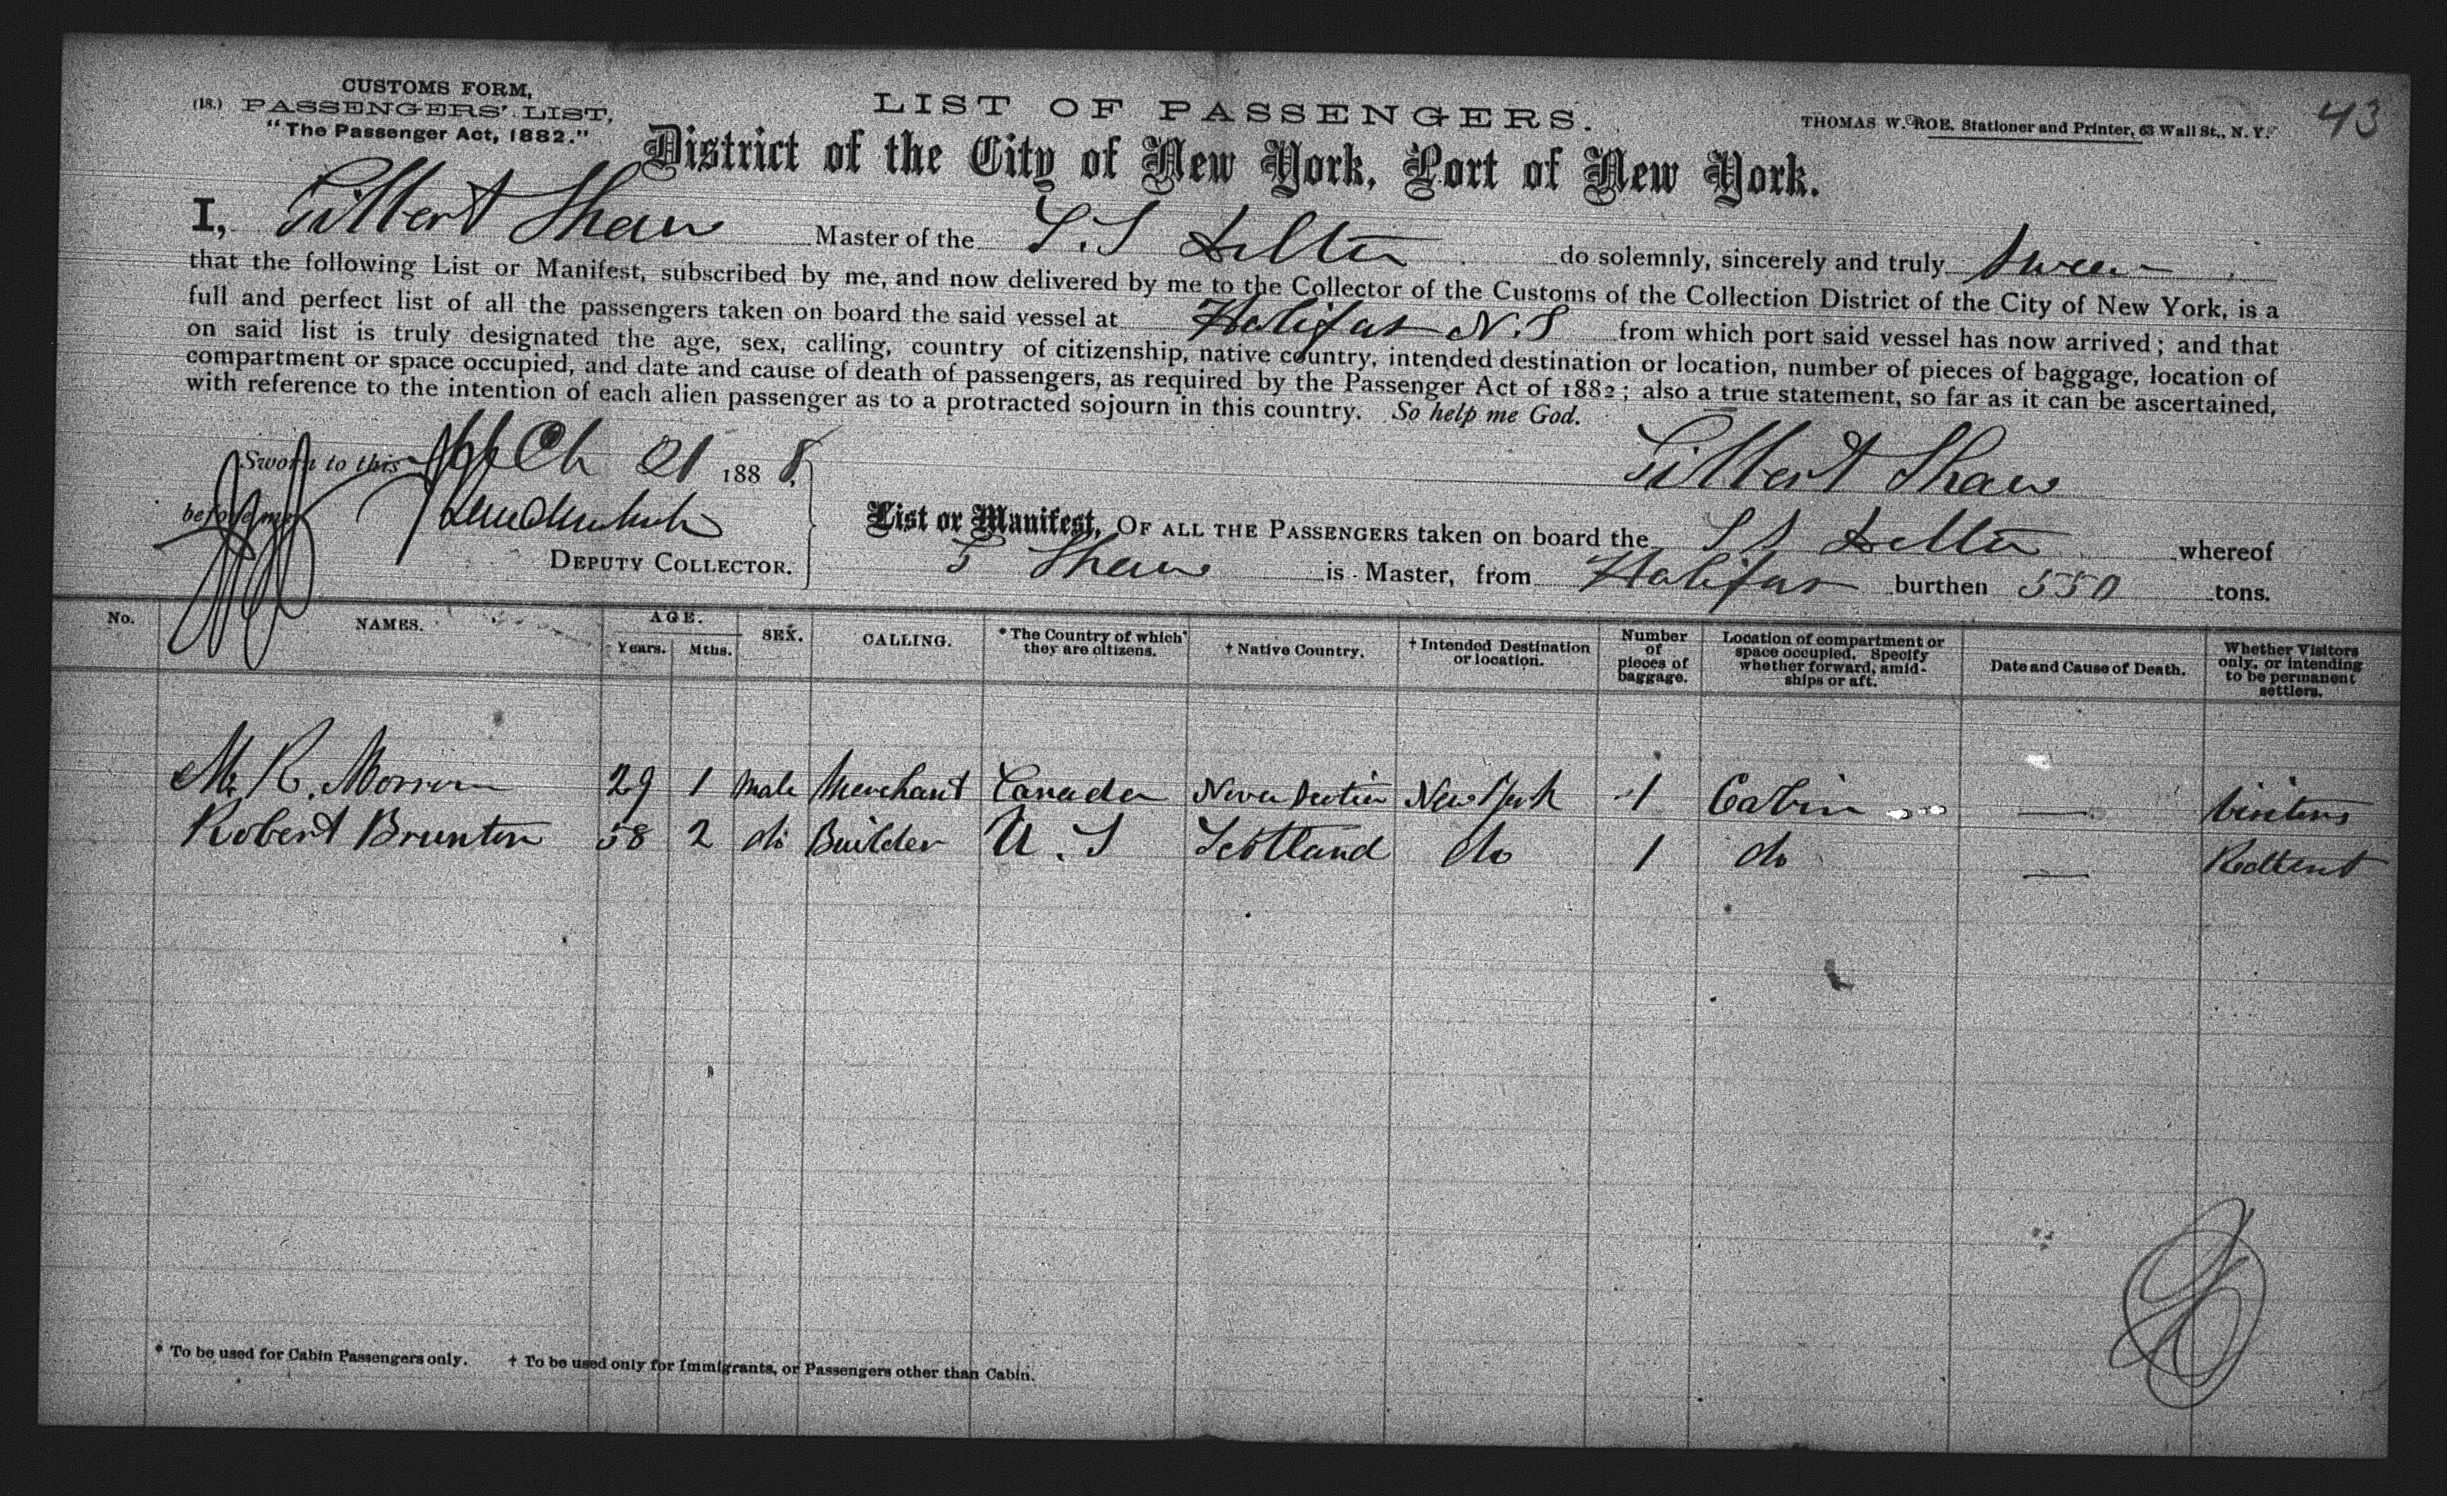 CUSTOMS FORM,
(18.) PASSENGERS' LIST,
"The Passenger Act, 1882."
LIST OF PASSENGERS.
THOMAS W. ROE, Stationer and Printer, 63 Wall St., N. Y.
43
District of the City of New York, Port of New York.
I, Gilbert Shaw Master of the S.S Delta do solemnly, sincerely and truly swear
that the following List or Manifest, subscribed by me, and now delivered by me to the Collector of the Customs of the Collection District of the City of New York, is a
full and perfect list of all the passengers taken on board the said vessel at Halifax N.S from which port said vessel has now arrived; and that
on said list is truly designated the age, sex, calling, country of citizenship, native country, intended destination or location, number of pieces of baggage, location of
compartment or space occupied, and date and cause of death of passengers, as required by the Passenger Act of 1882; also a true statement, so far as it can be ascertained,
with reference to the intention of each alien passenger as to a protracted sojourn in this country. So help me God.
Sworn to this Mch 21 1888,
Gilbert Shaw
before me
DEPUTY COLLECTOR.
List or Manifest, OF ALL THE PASSENGERS taken on board the S S Delta whereof
G Shaw is Master, from Halifax burthen 550 tons.
No. NAMES. AGE. Years. Mths. SEX. CALLING. * The Country of which they are citizens. † Native Country. † Intended Destination or location. Number of pieces of baggage. Location of compartment or space occupied. Specify whether forward, amidships or aft. Date and Cause of Death. Whether Visitors only, or intending to be permanent settlers.
Mr R. Morrow 29 1 Male Merchant Canada Nova Scotia New York 1 Cabin — Visitors
Robert Brunton 58 2 do Builder U.S Scotland do 1 do —
* To be used for Cabin Passengers only. † To be used only for Immigrants, or Passengers other than Cabin.